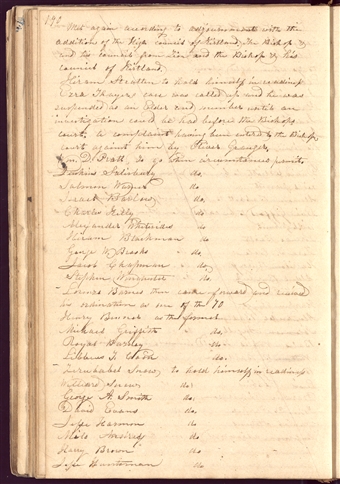 192
Met again according to adjournment with the
addition of the High council of Kirtland, The Bishop &
and his council from Zion and the Bishop & his
council of Kirtland,
Hiram Stratten to hold himself in readiness
Ezra Thayers case was called up and he was
suspended as an Elder and member until an
investigation could be had before the Bishops
court, a complaint having been entered to the Bishops
court against him by Oliver Granger,
Wm. D. Pratt, to go when circumstances permit,
Wilkins Salisbury do.
Salmon Warner do.
Israel Barlow do.
Charles Kelly do
Alexander Whitesides do
Hiram Blackman do
George W. Brooks do.
Jacob Chapman do.
Stephen Winchester do.
Lorenzo Barnes then came forward and received
his ordination as one of the 70
Henry Benner as the former
Michael Griffith do.
Royal Barney do.
Libbeus T. Coon do.
Zerrubabel Snow, to hold himself in readiness
Willard Snow, do
George A. Smith do.
David Evans do.
Jesse Harmon do.
Milo Andrus do.
Henry Brown do.
Jesse Huntsman do.